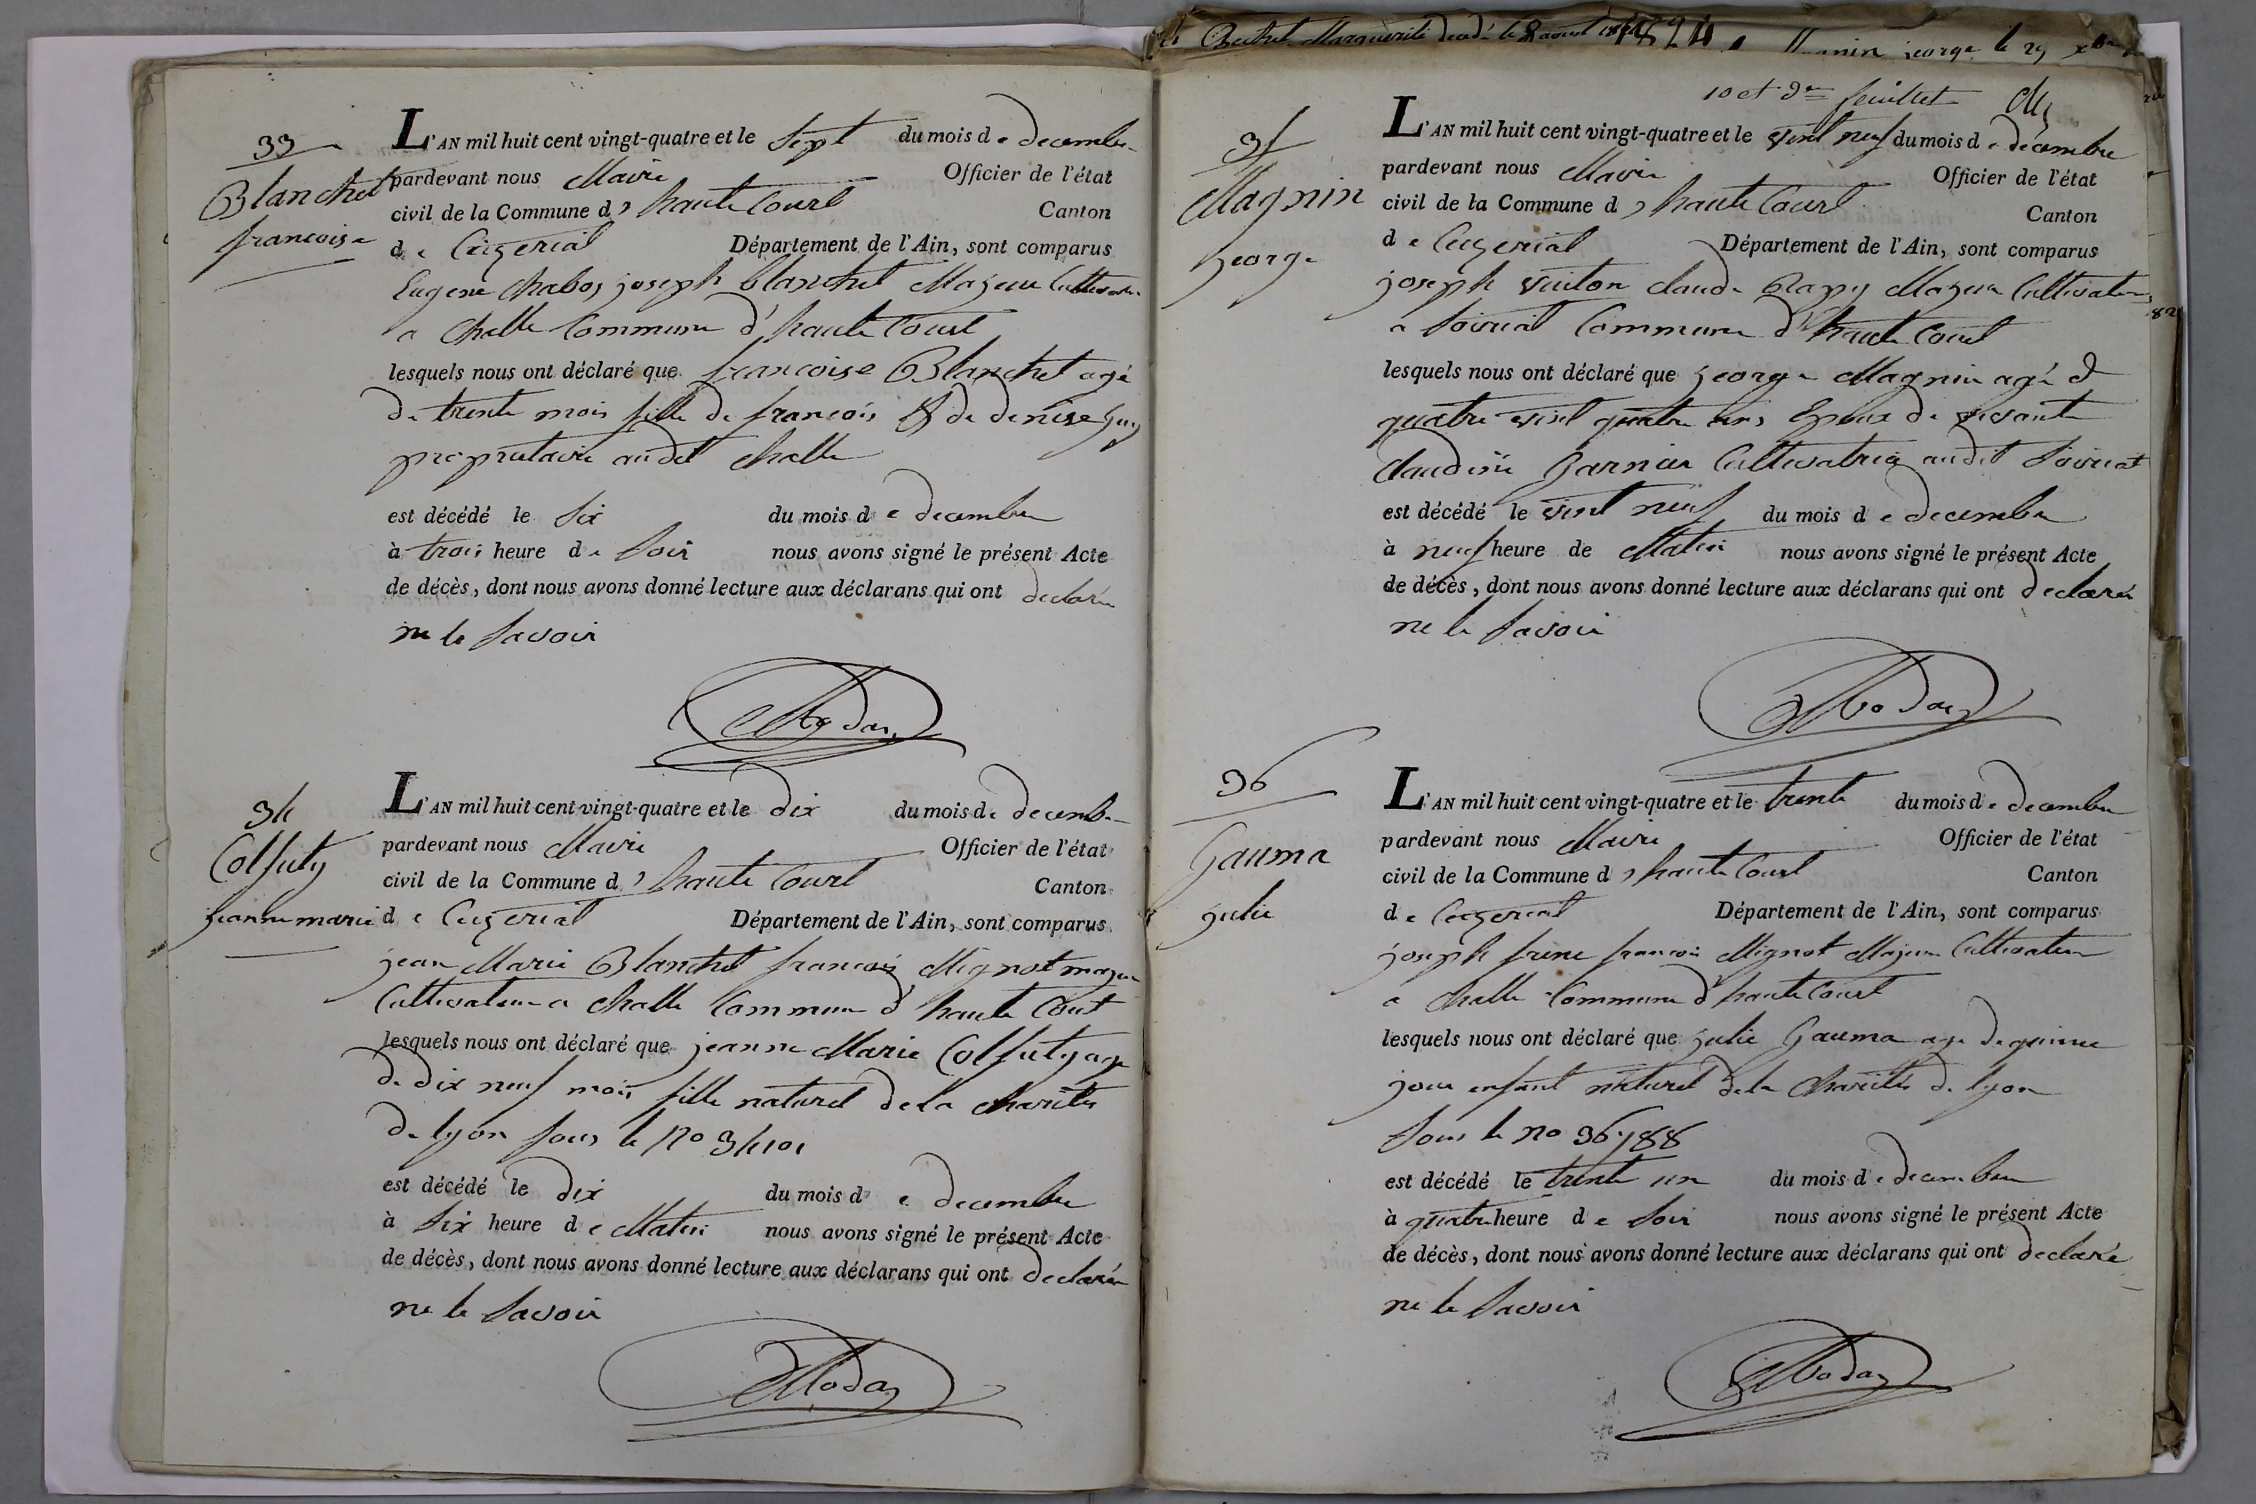 33
Blanchet
francoise
L'AN mil huit cent vingt-quatre et le Sept du mois d e decembre
pardevant nous Maire Officier de l'état
civil de la Commune d' hautecourt Canton
d e Ceyzeriat Département de l'Ain, sont comparus
Eugene Chabos joseph blanchet Majeur Cultivateur
a Challe Commune d' hautecourt
lesquels nous ont déclaré que francoise Blanchet agé
de trente mois fille de francois & de denise Guy
propriétaire audit challe
est décédé le Six du mois d e decembre
à trois heure d e Soir nous avons signé le présent Acte
de décès, dont nous avons donné lecture aux déclarans qui ont declaré
ne le Savoir
Modas
34
Colfuty
jeanne marie
L'AN mil huit cent vingt-quatre et le dix du mois d e decembre
pardevant nous Maire Officier de l'état
civil de la Commune d' haute Court Canton
d e Ceyzeriat Département de l'Ain, sont comparus
jean Marie Blanchet francois Mignot majeur
Cultivateur a Challe Commune d' haute Court
lesquels nous ont déclaré que jeanne Marie Colfuty age
de dix neuf mois fille naturel de la charité
de lyon sous le No 34101
est décédé le dix du mois d e decembre
à Six heure d e Matin nous avons signé le présent Acte
de décès, dont nous avons donné lecture aux déclarans qui ont declaré
ne le Savoir
Modas
Marguerite decedé le 8 aout 1824 george le 29 xbre
10 et der feuillet
35
Magnin
george
L'AN mil huit cent vingt-quatre et le vint neuf du mois d e décembre
pardevant nous Maire Officier de l'état
civil de la Commune d' haute Court Canton
d e Ceyzeriat Département de l'Ain, sont comparus
joseph vuiton claude Majeur Cultivateur
a Soiriat Commune d' haute Court
lesquels nous ont déclaré que george Magnin agé de
quatre vint quatre ans Epoux de vivante
claudine Garnier Cultivatrice audit Soiriat
est décédé le vint neuf du mois d e decembre
à neuf heure de Matin nous avons signé le présent Acte
de décès, dont nous avons donné lecture aux déclarans qui ont declaré
ne le Savoir
Modas
36
Gauma
julie
L'AN mil huit cent vingt-quatre et le trente du mois d e decembre
pardevant nous Maire Officier de l'état
civil de la Commune d' haute Court Canton
d e Ceyzeriat Département de l'Ain, sont comparus
joseph frene francois Mignot Majeur Cultivateur
a Challe Commune d' haute Court
lesquels nous ont déclaré que julie Gauma age de quinze
jour enfant naturel de la Charité de lyon
Sous le no 36788
est décédé le trente un du mois d e decembre
à quatre heure d e Soir nous avons signé le présent Acte
de décès, dont nous avons donné lecture aux déclarans qui ont declaré
ne le Savoir
Modas